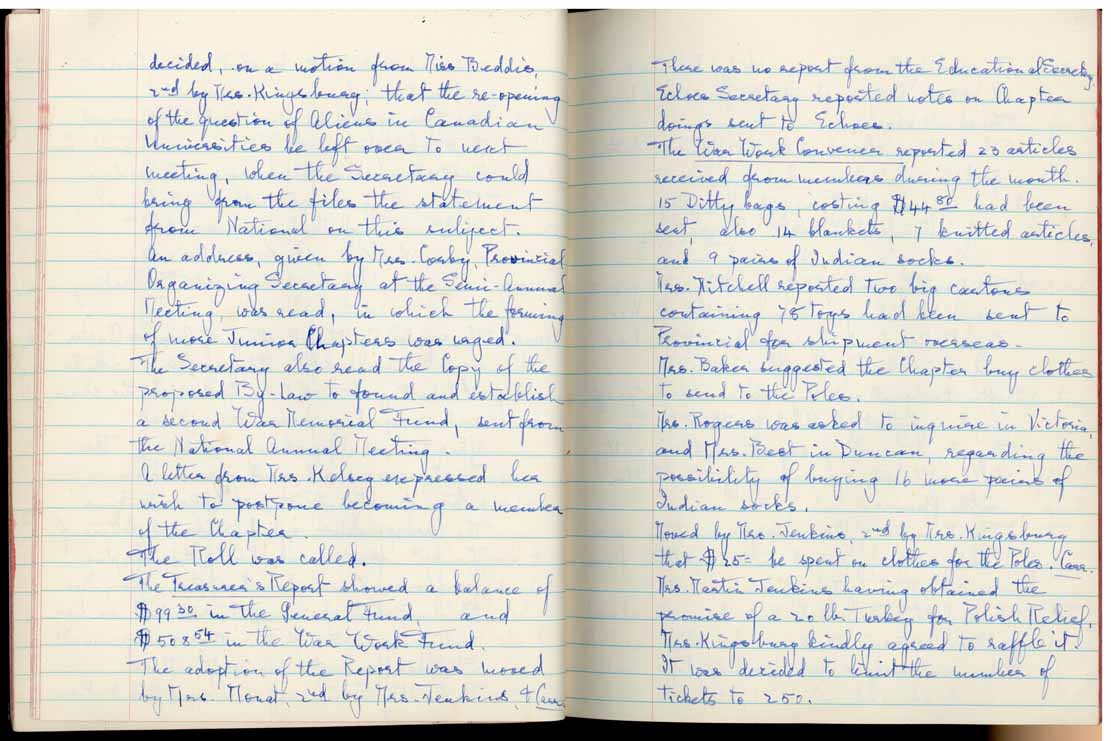 decided, on a motion from Miss Beddis,
2nd by Mrs. Kingsburg, that the re-opening
of the question of Aliens in Canadian
Universities be left over to next
meeting, when the Secretary could
bring from the files the statement
from National on this subject.
An address, given by Mrs. Corby, Provincial
Organizing Secretary at the Semi-Annual
Meeting, was read, in which the forming
of more Junior Chapters was urged.
The Secretary also read the Copy of the
proposed By-law to found and establish
a second War Memorial Fund, sent from
the National Annual Meeting.
A letter from Mrs. Kelsey expressed her
wish to postpone becoming a member
of the Chapter.
The Roll was called.
The Treasurer's Report showed a balance of
$99 30 in the General Fund, and
$508 54 in the War Work Fund.
The adoption of the Report was moved
by Mrs. Mouat, 2nd by Mrs. Jenkins, & Carr.
There was no report from the Educational Secretary.
Echoes Secretary reported notes on Chapter
doings sent to Echoes.
The War Work Convener reported 23 articles
received from members during the month.
15 Ditty bags, costing $44 80 had been
sent, also 14 blankets, 7 knitted articles,
and 9 pairs of Indian socks.
Mrs. Mitchell reported two big cartons
containing 78 toys had been sent to
Provincial for shipment overseas.
Mrs. Baker suggested the Chapter buy clothes
to send to the Poles.
Mrs. Rogers was asked to inquire in Victoria,
and Mrs. Best in Duncan, regarding the
possibility of buying 16 more pairs of
Indian socks.
Moved by Mrs. Jenkins, 2nd by Mrs. Kingsburg
that $25= be spent on clothes for the Poles. Carr.
Mrs. Martin Jenkins having obtained the
promise of a 20 lb Turkey for Polish Relief,
Mrs. Kingsburg kindly agreed to raffle it.
It was decided to limit the number of
tickets to 250.